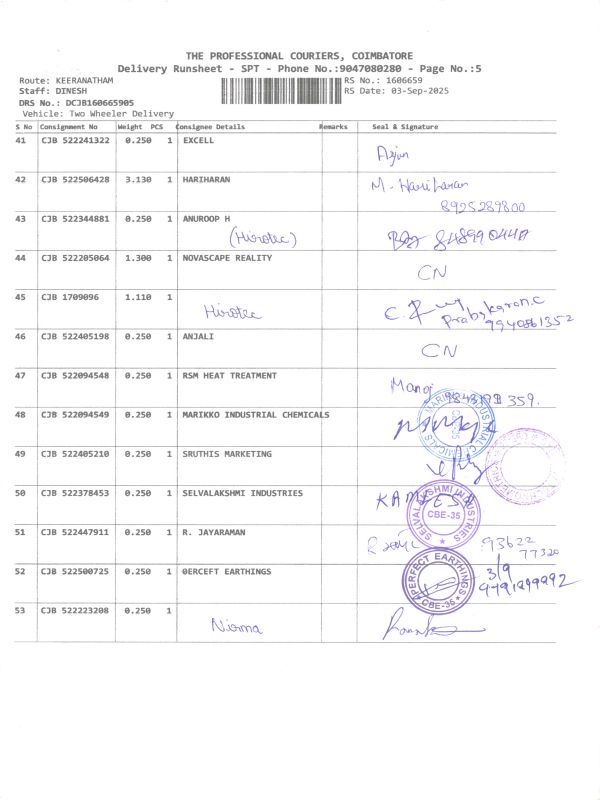 THE PROFESSIONAL COURIERS, COIMBATORE
Delivery Runsheet - SPT - Phone No.:9047080280 - Page No.:5
Route: KEERANATHAM RS No.: 1606659
Staff: DINESH RS Date: 03-Sep-2025
DRS No.: DCJB160665905
Vehicle: Two Wheeler Delivery
S No Consignment No Weight PCS Consignee Details Remarks Seal & Signature
41 CJB 522241322 0.250 1 EXCELL
Arjun
42 CJB 522506428 3.130 1 HARIHARAN M. Hariharan
8925289800
43 CJB 522344881 0.250 1 ANUROOP H
(Hirotec)
44 CJB 522205064 1.300 1 NOVASCAPE REALITY
CN
45 CJB 1709096 1.110 1
Hirotec Prabakaran.C
9940561352
46 CJB 522405198 0.250 1 ANJALI
CN
47 CJB 522094548 0.250 1 RSM HEAT TREATMENT
Manoj 359.
48 CJB 522094549 0.250 1 MARIKKO INDUSTRIAL CHEMICALS
MARIKKO INDUSTRIAL CHEMICALS CBE-35
49 CJB 522405210 0.250 1 SRUTHIS MARKETING
50 CJB 522378453 0.250 1 SELVALAKSHMI INDUSTRIES
SELVALAKSHMI INDUSTRIES CBE-35
51 CJB 522447911 0.250 1 R. JAYARAMAN
93622
77320
52 CJB 522500725 0.250 1 0ERCEFT EARTHINGS
PERFECT EARTHINGS CBE-35 3/9
9791899992
53 CJB 522223208 0.250 1
Nirma